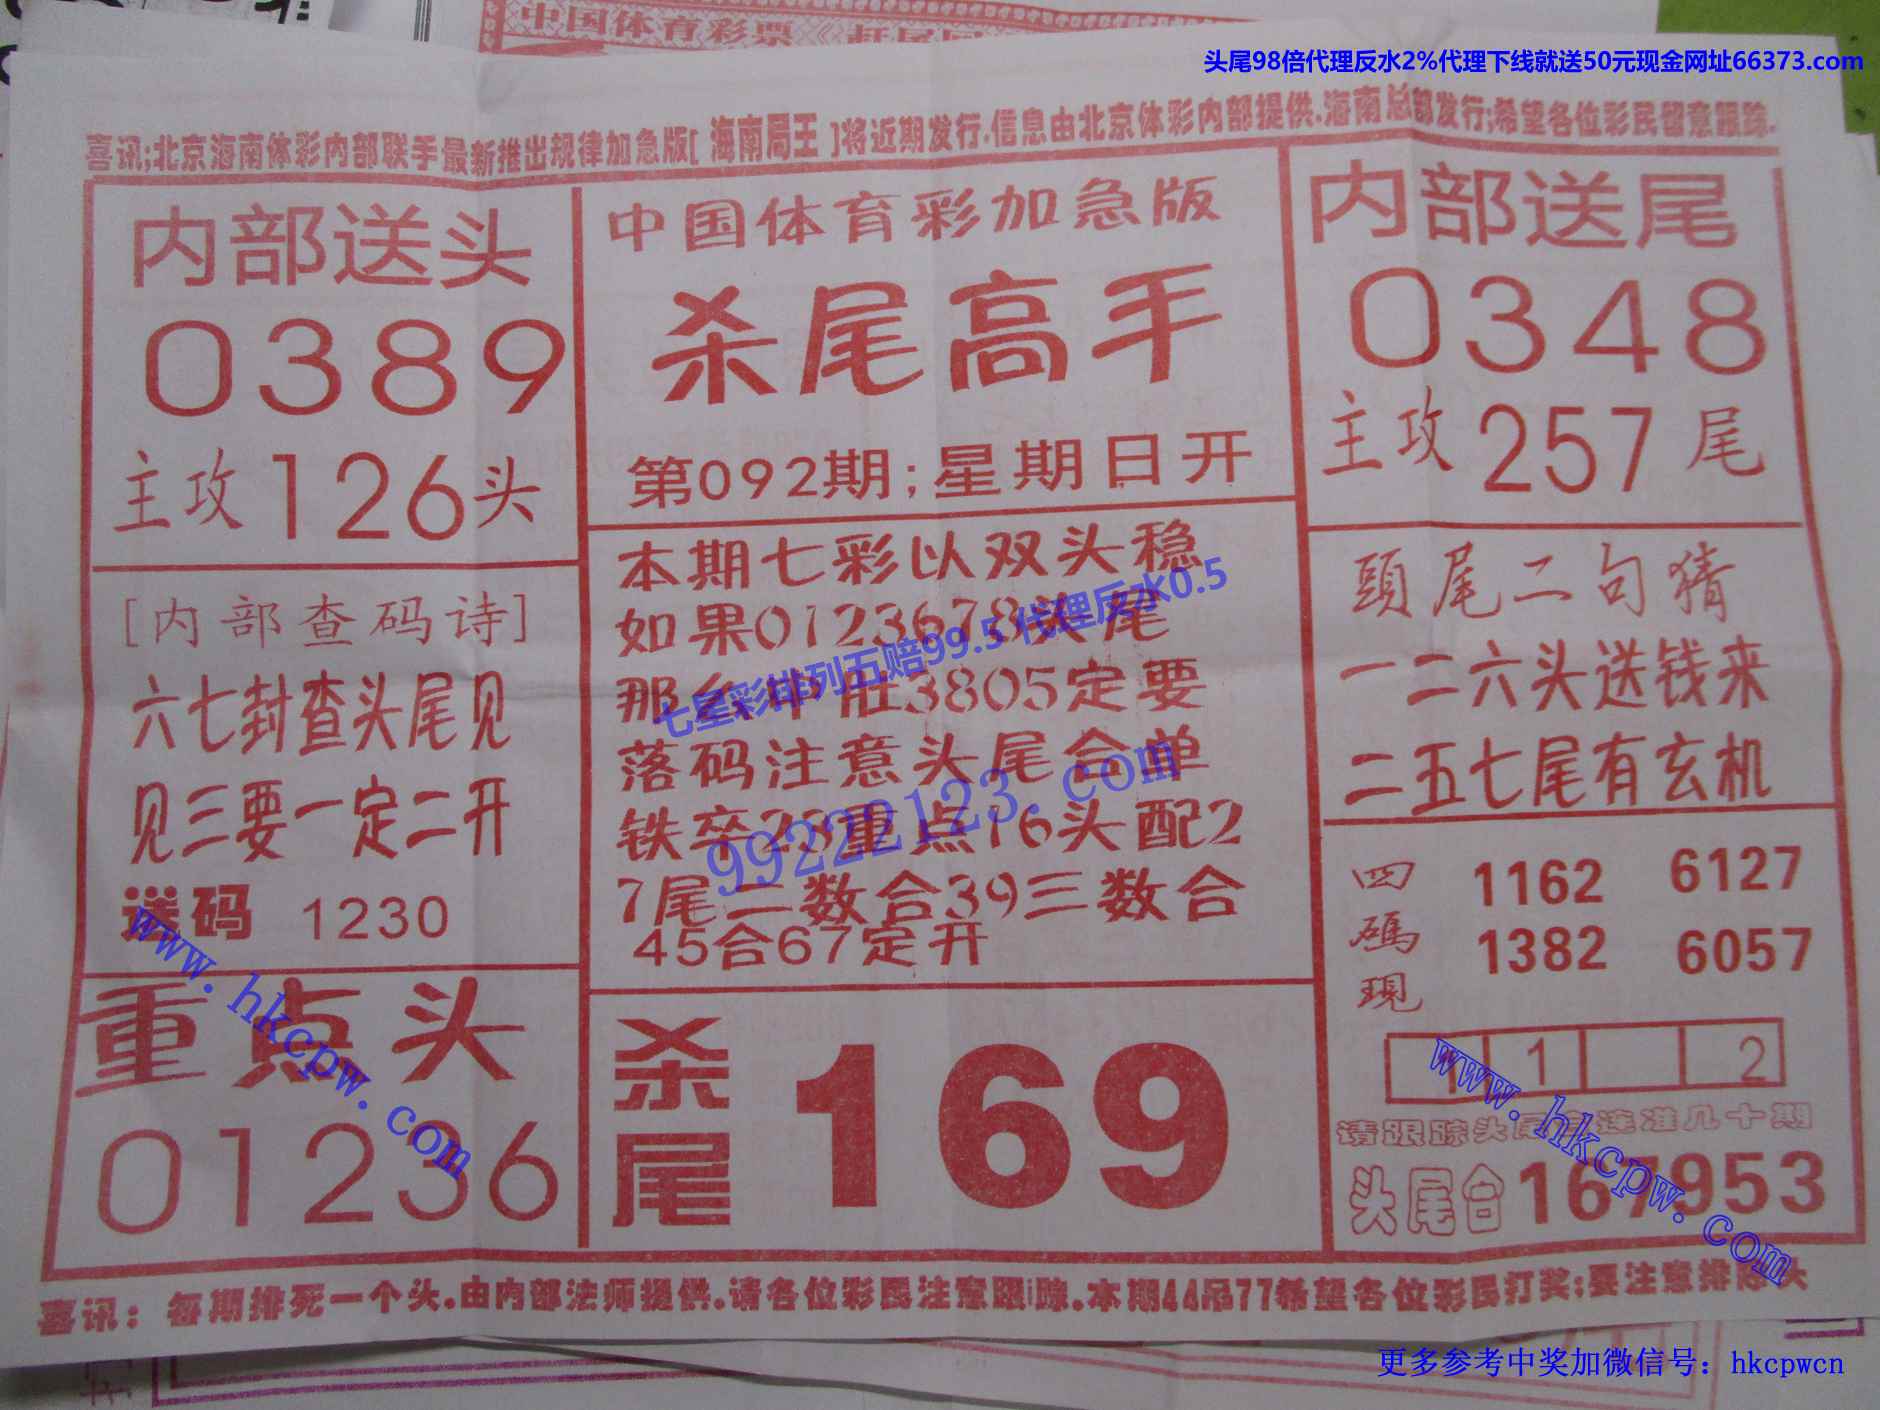 中国体育彩票《赶尾
头尾98倍代理反水2%代理下线就送50元现金网址66373.com
喜讯;北京海南体彩内部联手最新推出规律加急版[海南局王]将近期发行.信息由北京体彩内部提供.海南总部发行;希望各位彩民留意跟踪.
内部送头
0389
主攻126头
[内部查码诗]
六七封查头尾见
见三要一定二开
送码 1230
重点头
01236
中国体育彩加急版
杀尾高手
第092期;星期日开
本期七彩以双头稳
如果0123678头尾
那么中肚3805定要
落码注意头尾合单
铁卒28重点16头配2
7尾二数合39三数合
45合67定开
杀尾
169
内部送尾
0348
主攻257尾
頭尾二句猜
一二六头送钱来
二五七尾有玄机
四碼現
1162 6127
1382 6057
1 1 2
请跟踪头尾合连准几十期
头尾合167953
喜讯：每期排死一个头.由内部法师提供.请各位彩民注意跟踪.本期44吊77希望各位彩民打奖;要注意排除头
七星彩排列五赔99.5 代理反水0.5
99222123.com
www.hkcpw.com
www.hkcpw.com
更多参考中奖加微信号：hkcpwcn